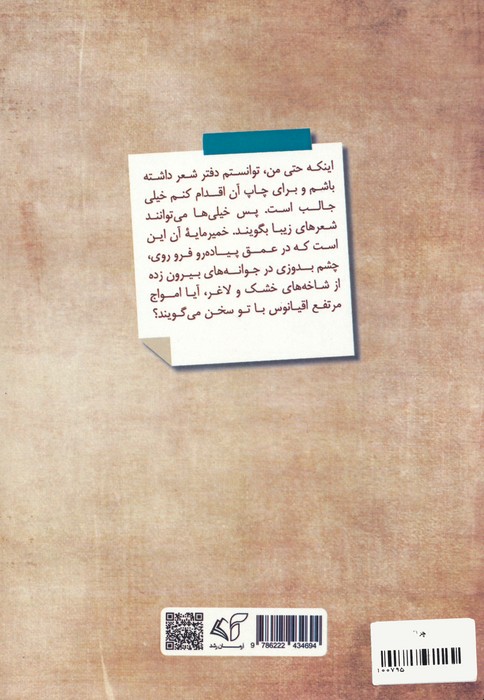 اینکه حتی من، توانستم دفتر شعر داشته
باشم و برای چاپ آن اقدام کنم خیلی
جالب است. پس خیلی‌ها می‌توانند
شعرهای زیبا بگویند. خمیرمایهٔ آن این
است که در عمق پیاده‌رو فرو روی،
چشم بدوزی در جوانه‌های بیرون زده
از شاخه‌های خشک و لاغر، آیا امواج
مرتفع اقیانوس با تو سخن می‌گویند؟
آرمان رشد
9 786222 434694
۱۰۰۷۹۵